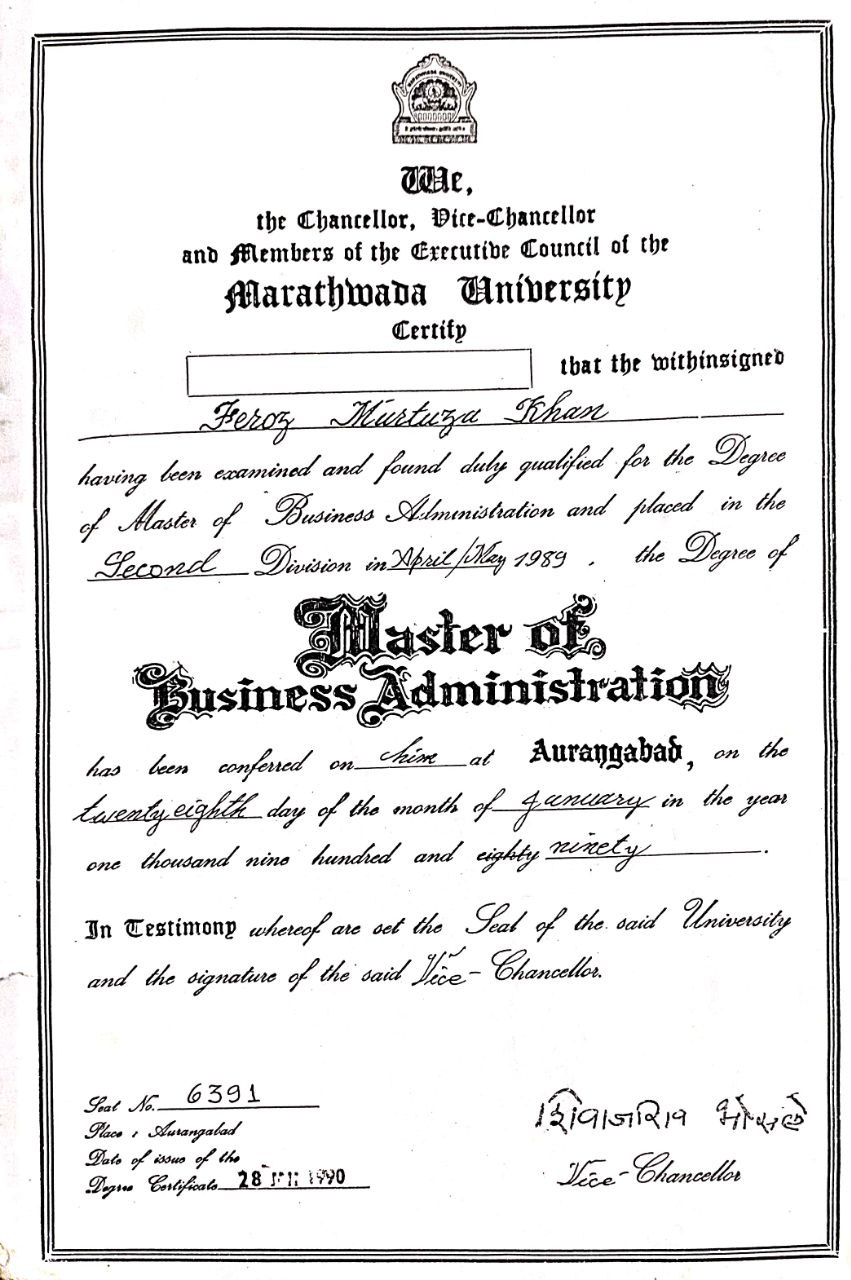 We,
the Chancellor, Vice-Chancellor
and Members of the Executive Council of the
Marathwada University
Certify
that the withinsigned
Feroz Murtuza Khan
having been examined and found duly qualified for the Degree
of Master of Business Administration and placed in the
Second Division in April/May 1989 . the Degree of
Master of
Business Administration
has been conferred on him at Aurangabad, on the
twenty eighth day of the month of January in the year
one thousand nine hundred and eighty ninety.
In Testimony whereof are set the Seal of the said University
and the signature of the said Vice-Chancellor.
Seat No. 6391
Place : Aurangabad
Date of issue of the
Degree Certificate 28 1990
भोसले
Vice-Chancellor